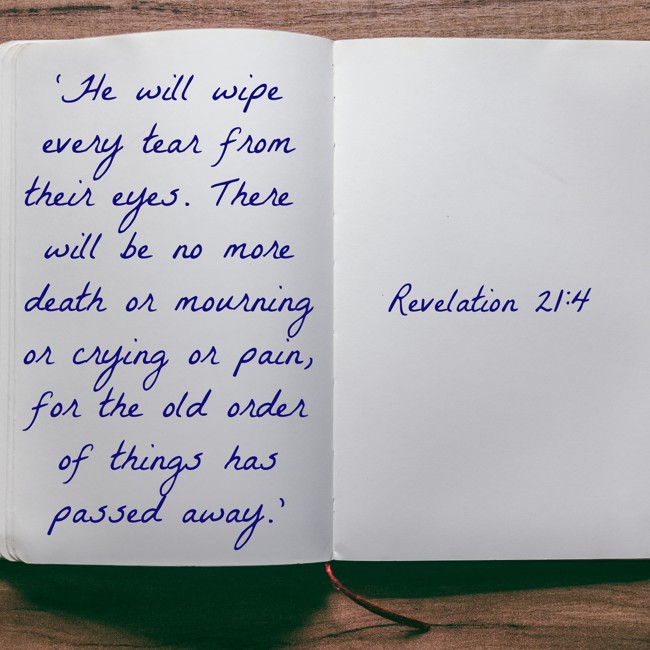 'He will wipe
every tear from
their eyes. There
will be no more
death or mourning
or crying or pain,
for the old order
of things has
passed away.'
Revelation 21:4